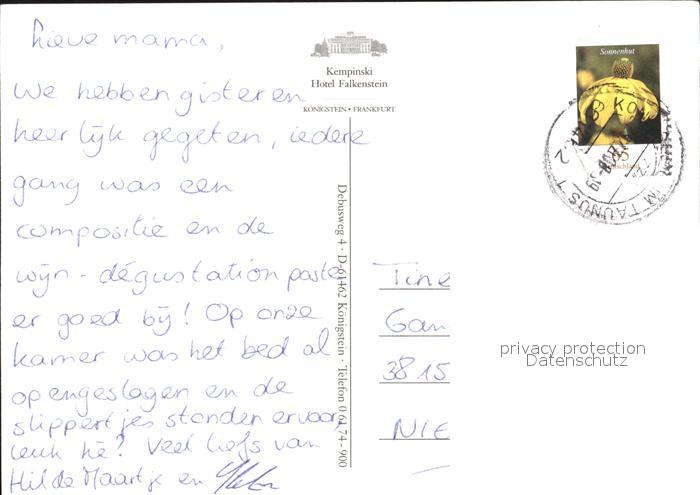 Lieve mama,
We hebben gisteren
heerlijk gegeten, iedere
gang was een
compositie en de
wijn-dégustation paste
er goed bij! Op onze
kamer was het bed al
opengeslagen en de
slippertjes stonden ervoor,
leuk hè? Veel liefs van
Hilde Maartje en
Kempinski
Hotel Falkenstein
KÖNIGSTEIN • FRANKFURT
Debusweg 4 · D-61462 Königstein · Telefon 0 61 74 - 900
Sonnenhut
IM TAUNUS 1
Tine
Gan
3815
NIE
privacy protection
Datenschutz